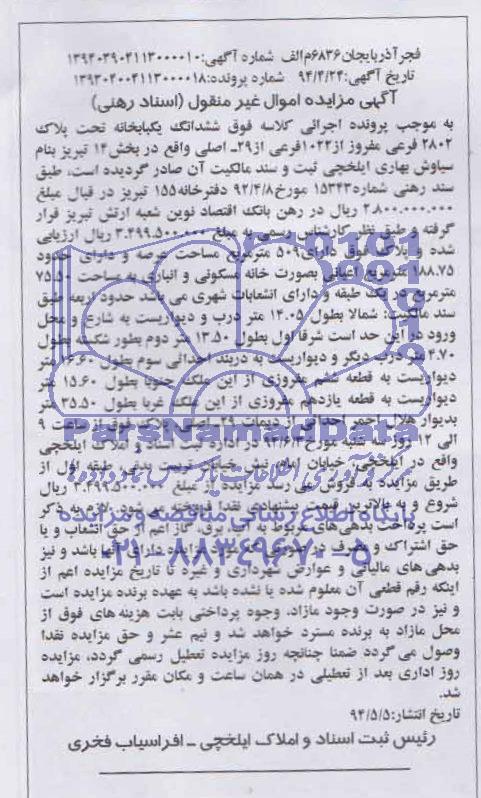 فجر آذربایجان ۶۸۳۶م الف شماره آگهی: ۱۳۹۴۰۳۹۰۴۱۱۳۰۰۰۰۱۰
تاریخ آگهی: ۹۴/۴/۲۴ شماره پرونده: ۱۳۹۳۰۴۰۰۴۱۱۳۰۰۰۰۱۸
آگهی مزایده اموال غیر منقول (اسناد رهنی)
به موجب پرونده اجرائی کلاسه فوق ششدانگ یکبابخانه تحت پلاک
۲۸۰۲ فرعی مفروز از ۱۰۲۲فرعی از ۲۹ـ اصلی واقع در بخش ۱۴ تبریز بنام
سیاوش بهاری ایلخچی ثبت و سند مالکیت آن صادر گردیده است، طبق
سند رهنی شماره ۱۵۳۴۳ مورخ ۹۲/۴/۸ دفترخانه ۱۵۵ تبریز در قبال مبلغ
۲.۸۰۰.۰۰۰.۰۰۰ ریال در رهن بانک اقتصاد نوین شعبه ارتش تبریز قرار
گرفته و طبق نظر کارشناس رسمی به مبلغ ۳.۴۹۹.۵۰۰.۰۰۰ ریال ارزیابی
شده و پلاک فوق دارای ۵۰۹ مترمربع مساحت عرصه و دارای حدود
۱۸۸.۷۵ مترمربع اعیانی بصورت خانه مسکونی و انباری به مساحت ۷۵.۵۰
مترمربع در یک طبقه و دارای انشعابات شهری می باشد حدود اربعه طبق
سند مالکیت: شمالا بطول ۱۴.۰۵ متر درب و دیواریست به شارع و محل
ورود در این حد است شرقا اول بطول ۱۳.۵۰ متر دوم بطور شکسته بطول
۴.۷۰ متر درب دیگر و دیواریست به دربند احداثی سوم بطول ۱۶.۶۰ متر
دیواریست به قطعه ششم مفروزی از این ملک جنوبا بطول ۱۵.۶۰ متر
دیواریست به قطعه یازدهم مفروزی از این ملک غربا بطول ۳۵.۵۰ متر
بدیوار هلال احمر احداثی از دیمات ۲۹ـ اصلی پلاک فوق از ساعت ۹
الی ۱۲ روز سه شنبه مورخ ۹۴/۶/۳ در اداره ثبت اسناد و املاک ایلخچی
واقع در ایلخچی، خیابان امام، نبش خیابان تربیت بدنی، طبقه اول از
طریق مزایده به فروش می رسد مزایده از مبلغ ۳.۴۹۹.۵۰۰.۰۰۰ ریال
شروع و به بالاترین قیمت پیشنهادی نقدا فروخته می شود. لازم به ذکر
است پرداخت بدهی های مربوط به آب، برق، گاز اعم از حق انشعاب و یا
حق اشتراک و مصرف در صورتی که مورد مزایده دارای آنها باشد و نیز
بدهی های مالیاتی و عوارض شهرداری و غیره تا تاریخ مزایده اعم از
اینکه رقم قطعی آن معلوم شده یا نشده باشد به عهده برنده مزایده است
و نیز در صورت وجود مازاد، وجوه پرداختی بابت هزینه های فوق از
محل مازاد به برنده مسترد خواهد شد و نیم عشر و حق مزایده نقدا
وصول می گردد ضمنا چنانچه روز مزایده تعطیل رسمی گردد، مزایده
روز اداری بعد از تعطیلی در همان ساعت و مکان مقرر برگزار خواهد
شد.
تاریخ انتشار: ۹۴/۵/۵
رئیس ثبت اسناد و املاک ایلخچی ـ افراسیاب فخری
ParsNamadData
پایگاه اطلاع رسانی مناقصه و مزایده
۰۲۱-۸۸۳۴۹۶۷۰-۵